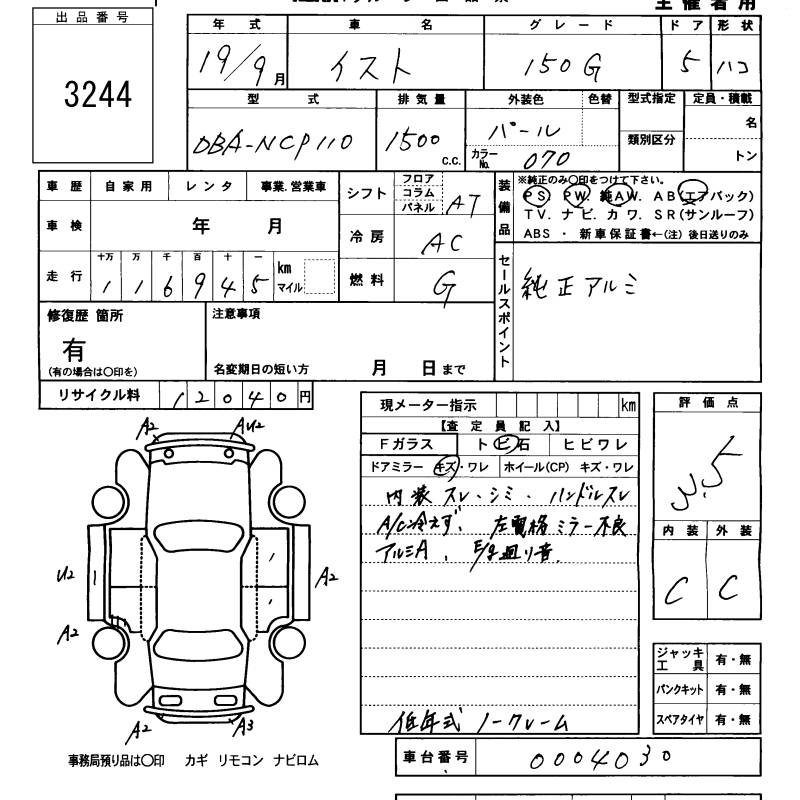 主催者用
出品番号
3244
年式 車名 グレード ドア 形状
19/9月 イスト 150G 5 ハコ
型式 排気量 外装色 色替 型式指定 定員・積載
DBA-NCP110 1500 C.C. パール 名
カラーNo. 070 類別区分 トン
車歴 自家用 レンタ 事業.営業車
車検 年 月
走行 十万 万 千 百 十 一
1 1 6 9 4 5 km マイル
シフト フロア コラム パネル AT
冷房 AC
燃料 G
装備品 ※純正のみ○印をつけて下さい。
PS. PW. 純AW. AB(エアバック)
TV. ナビ. カワ. SR(サンルーフ)
ABS ・ 新車保証書←(注)後日送りのみ
セールスポイント 純正アルミ
修復歴 箇所
有
(有の場合は○印を)
注意事項
名変期日の短い方 月 日まで
リサイクル料 12040円
現メーター指示 km
【査定員記入】
Fガラス トビ石 ヒビワレ
ドアミラー キズ・ワレ ホイール(CP) キズ・ワレ
内装 スレ・シミ・ハンドルスレ
A/C冷えず. 左電格ミラー不良
アルミA. E/g廻り音.
低年式 ノークレーム
評価点
3.5
内装 外装
C C
ジャッキ工具 有・無
パンクキット 有・無
スペアタイヤ 有・無
A2 AU2
U2 A2
A2
A2 A3
事務局預り品は○印 カギ リモコン ナビロム
車台番号 0004030